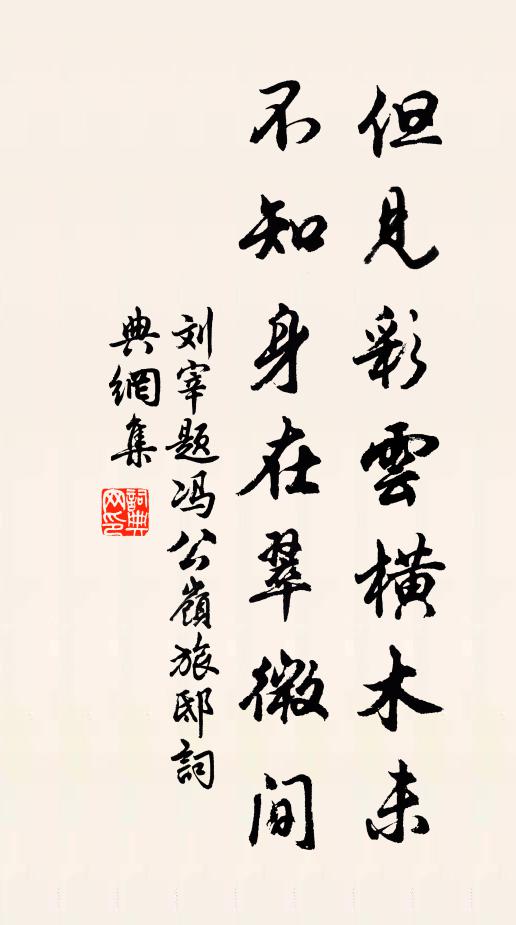 但見彩雲横木末
不知身在翠微间
刘宰题冯公嶺旅邸詞
典網集
詞典
网印